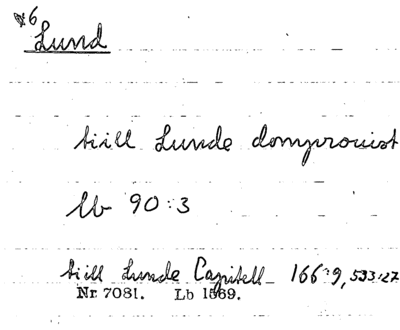 Lund
tiill Lunde domprouist
lb 90:3
tiill Lunde Capitell 166:9, 533:27
Nr 7081. Lb 1569.